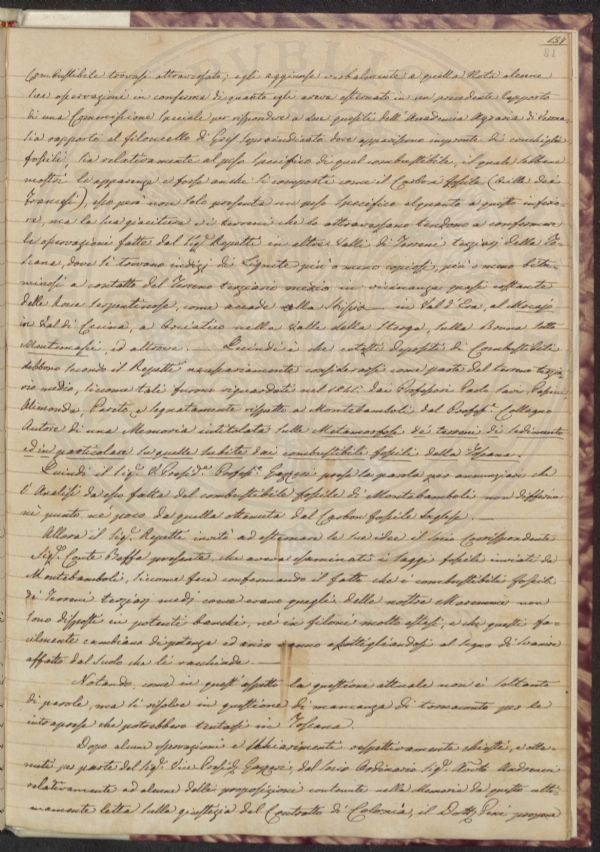 131
81
Combustibile trovasi attraversato; egli aggiunse verbalmente a quella Nota alcune
sue osservazioni in conferma di quanto egli aveva esternato in un precedente Rapporto
di una Commissione speciale per rispondere a due quesiti dell'Accademia Agraria di
sia rapporto al filoncello di sopraindicato dove appariscono impronte di conchiglie
fossili, sia relativamente al peso specifico di quel combustibile, il quale sebbene
mostri le apparenze e forse anche si comporti come il Carbon fossile (
Francesi), esso però non solo presenta un peso specifico alquanto a questo inferio-
re, ma la sua giacitura e i terreni che lo attraversano tendono a confermare
le osservazioni fatte dal Sigr. Repetti in altre Valli di Terreni terziarj della To-
scana, dove si trovano indizj di Lignite più o meno copiosi, più o meno bitu-
minosi a contatto del terreno terziario medio in vicinanza quasi costante
delle Rocce serpentinose, come accade alla in Val d'Era, al
in Val di Cecina, a Bociatico nella Valle della Sterza, sulla Bruna sotto
Montemassi, ed altrove. — Quindi è che cotesti depositi di Combustibili
debbono secondo il Repetti necessariamente considerarsi come parte del terreno terzia-
rio medio, siccome tali furono riguardati nel dai Professori Paolo Savi,
Pareto, e segnatamente rispetto a Montebamboli dal Profr. Collegno
Autore di una Memoria intitolata sulle Metamorfosi de' terreni di sedimento
ed in particolare su quelle subite dai combustibili fossili della Toscana.
Quindi il Sigr. Profr. Gazzeri prese la parola per annunziare che
l'Analisi da esso fatta del combustibile fossile di Montebamboli non differiva
nè punto nè poco da quella ottenuta dal Carbon fossile Inglese. —
Allora il Sigr. Repetti invitò ad esternare le sue idee il Socio Corrispondente
Sigr. Conte presente, che aveva esaminati i saggi fossili inviati da
Montebamboli, siccome fece confermando il fatto che i combustibili fossili
dei Terreni terziarj medj come erano quegli delle nostre Maremme non
sono disposti in potenti banchi, nè in filoni molto estesi, e che questi fa-
cilmente cambiano di potenza ed anzi vanno assottigliandosi al segno di svanire
affatto dal suolo che li racchiude. —
Notando come in quest'aspetto la questione attuale non è soltanto
di parole, ma si risolve in questione di mancanza di tornaconto per le
intraprese che potrebbero tentarsi in Toscana.
Dopo alcune osservazioni e schiarimenti rispettivamente chiesti, e otte-
nuti per parte del Sigr. Vice Presidte. Gazzeri, dal Socio Ordinario Sigr. Andreucci
relativamente ad alcune delle proposizioni contenute nella Memoria da questo ulti-
mamente letta sulla giustizia del Contratto di Colonia, il Dottr. propone